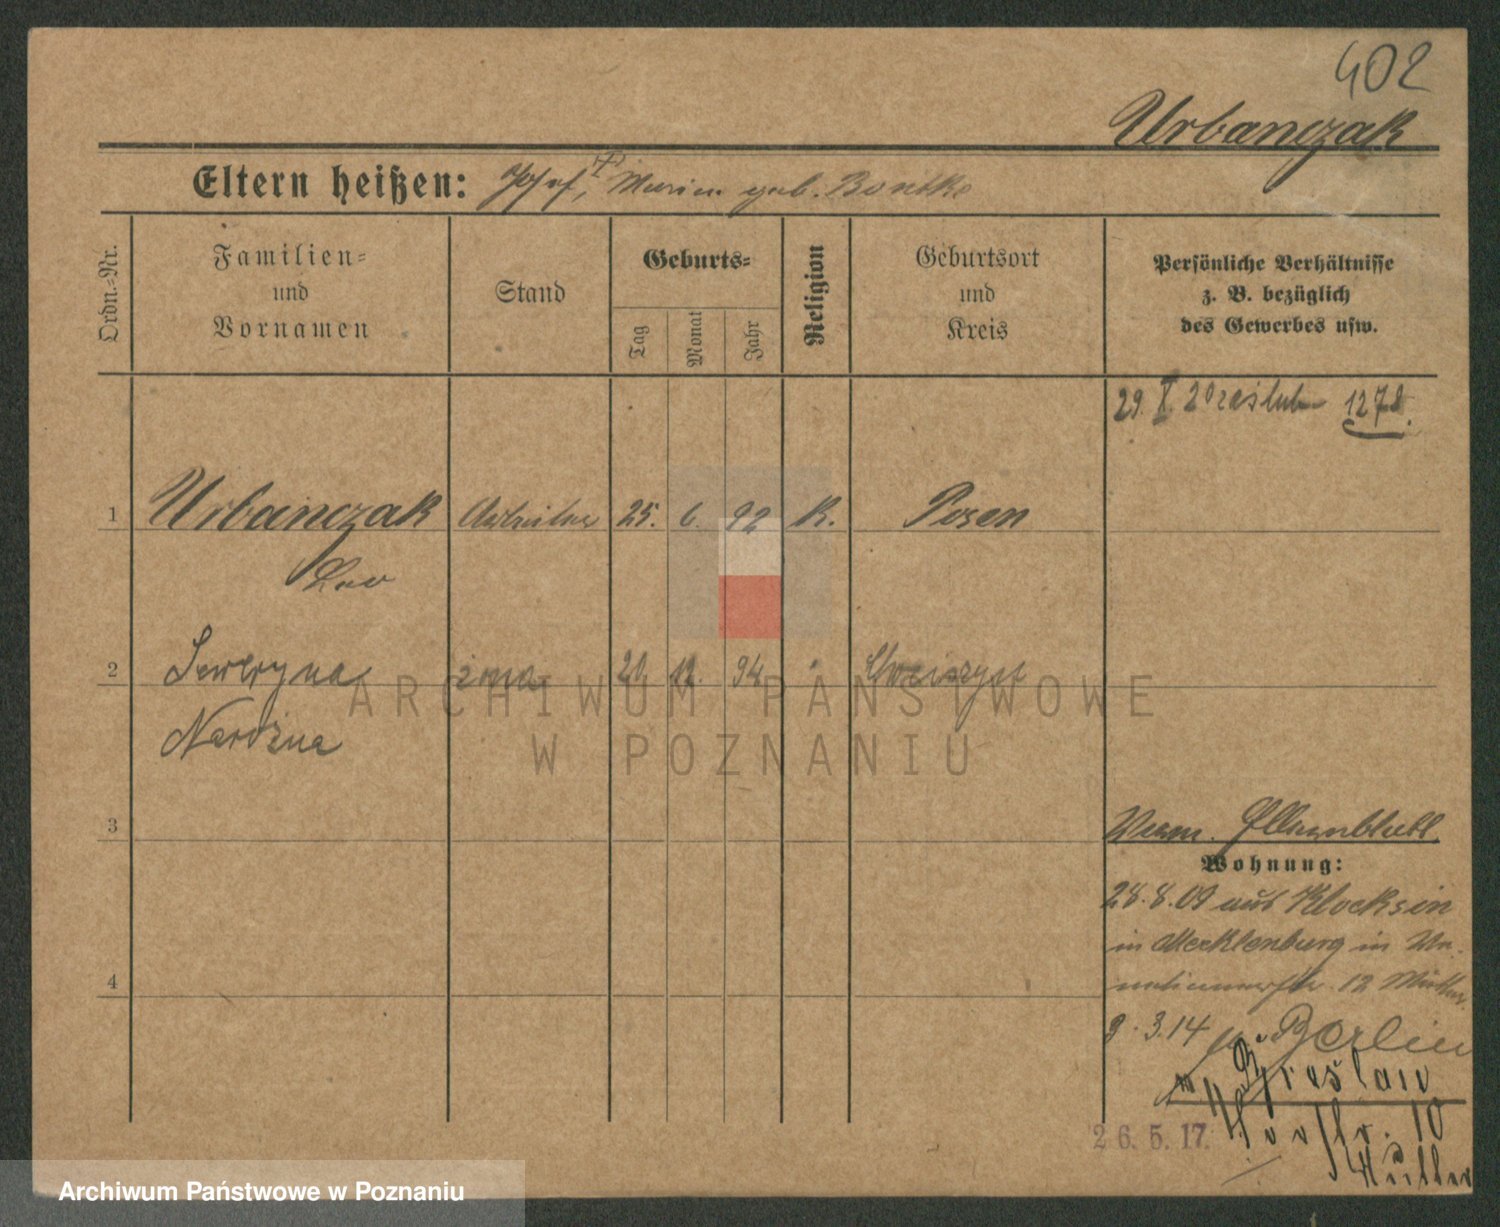 402
Urbanczak
Eltern heißen: Josef, Maria geb. Bontke
Ordn.-Nr.
Familien- und Vornamen
Stand
Geburts-
Tag
Monat
Jahr
Religion
Geburtsort und Kreis
Persönliche Verhältnisse
z. B. bezüglich
des Gewerbes usw.
29. X. 20 ześlub 1278.
1 Urbanczak Arbeiter 25. 6. 92 K. Posen
Leo
2 Seweryna żona 94
Nardzna
ARCHIWUM PAŃSTWOWE
W POZNANIU
3
Verm.
Wohnung:
28.8.09 aus Klocksin
in Mecklenburg in
12 Mutter
3.14 n. Berlin
v. Breslau
10
26.5.17.
Mutter
4
Archiwum Państwowe w Poznaniu